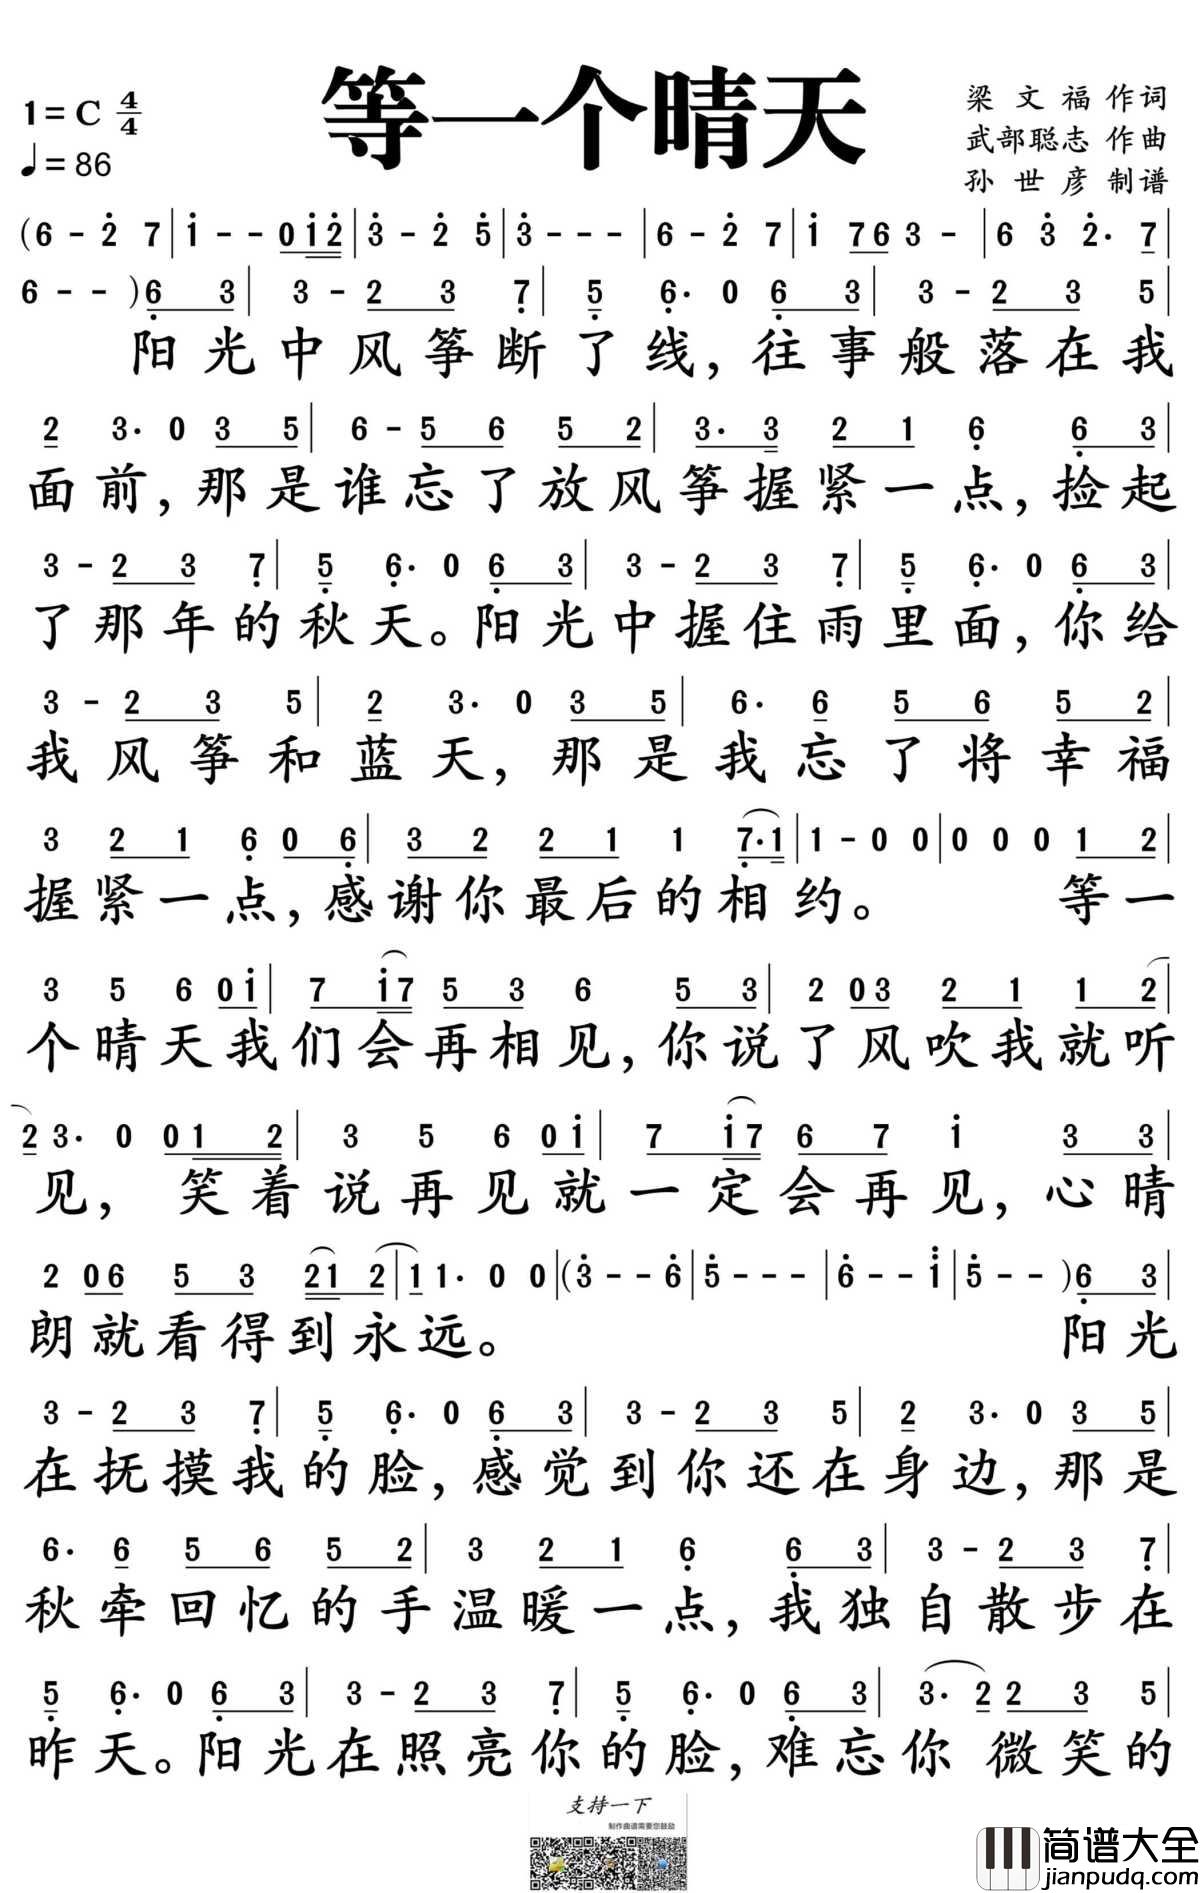 等一个晴天
1=C 4/4
♩=86
梁文福 作词
武部聪志 作曲
孙世彦 制谱
(6 - 2̇ 7 | 1̇ - - 0 1̇ 2̇ | 3̇ - 2̇ 5̇ | 3̇ - - - | 6 - 2̇ 7 | 1̇ 7 6 3 - | 6 3̇ 2̇· 7 |
6 - - ) 6̣ 3 | 3 - 2 3 7̣ | 5̣ 6̣· 0 6̣ 3 | 3 - 2 3 5 |
阳光中风筝断了线，往事般落在我
2 3· 0 3 5 | 6 - 5 6 5 2 | 3· 3 2 1 6̣ 6̣ 3 |
面前，那是谁忘了放风筝握紧一点，捡起
3 - 2 3 7̣ | 5̣ 6̣· 0 6̣ 3 | 3 - 2 3 7̣ | 5̣ 6̣· 0 6̣ 3 |
了那年的秋天。阳光中握住雨里面，你给
3 - 2 3 5 | 2 3· 0 3 5 | 6· 6 5 6 5 2 |
我风筝和蓝天，那是我忘了将幸福
3 2 1 6̣ 0 6̣ | 3 2 2 1 1 7̣· 1 | 1 - 0 0 | 0 0 0 1 2 |
握紧一点，感谢你最后的相约。 等一
3 5 6 0 1̇ | 7 1̇ 7 5 3 6 5 3 | 2 0 3 2 1 1 2 |
个晴天我们会再相见，你说了风吹我就听
2 3· 0 0 1 2 | 3 5 6 0 1̇ | 7 1̇ 7 6 7 1̇ 3 3 |
见，笑着说再见就一定会再见，心晴
2 0 6 5 3 2 1 2 | 1 1· 0 0 | (3̇ - - 6̇ | 5̇ - - - | 6̇ - - 1̈ | 5̇ - - ) 6̣ 3 |
朗就看得到永远。 阳光
3 - 2 3 7̣ | 5̣ 6̣· 0 6̣ 3 | 3 - 2 3 5 | 2 3· 0 3 5 |
在抚摸我的脸，感觉到你还在身边，那是
6· 6 5 6 5 2 | 3 2 1 6̣ 6̣ 3 | 3 - 2 3 7̣ |
秋牵回忆的手温暖一点，我独自散步在
5̣ 6̣· 0 6̣ 3 | 3 - 2 3 7̣ | 5̣ 6̣· 0 6̣ 3 | 3· 2 2 3 5 |
昨天。阳光在照亮你的脸，难忘你微笑的
支持一下
制作曲谱需要您鼓励
简谱大全
jianpudq.com